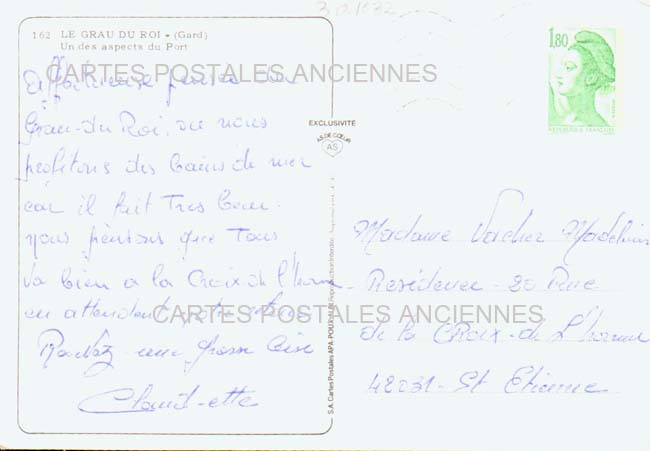 162 LE GRAU DU ROI - (Gard)
Un des aspects du Port
CARTES POSTALES ANCIENNES
Affectueuse pensée du
Grau-du Roi, ou nous
profitons des bains de mer
car il fait Très beau.
nous pensons que Tous
va bien a la Croix de l'horme
en attendant notre retour
une grosse bise
Claud-ette
EXCLUSIVITÉ
AS DE CŒUR
AS
S.A. Cartes Postales APA-POUX Reproduction Interdite
1,80
REPUBLIQUE FRANÇAISE
Madame Verdier
Résidence - 20 Rue
de la CROix-de L'horme
CARTES POSTALES ANCIENNES
42031- St Etienne